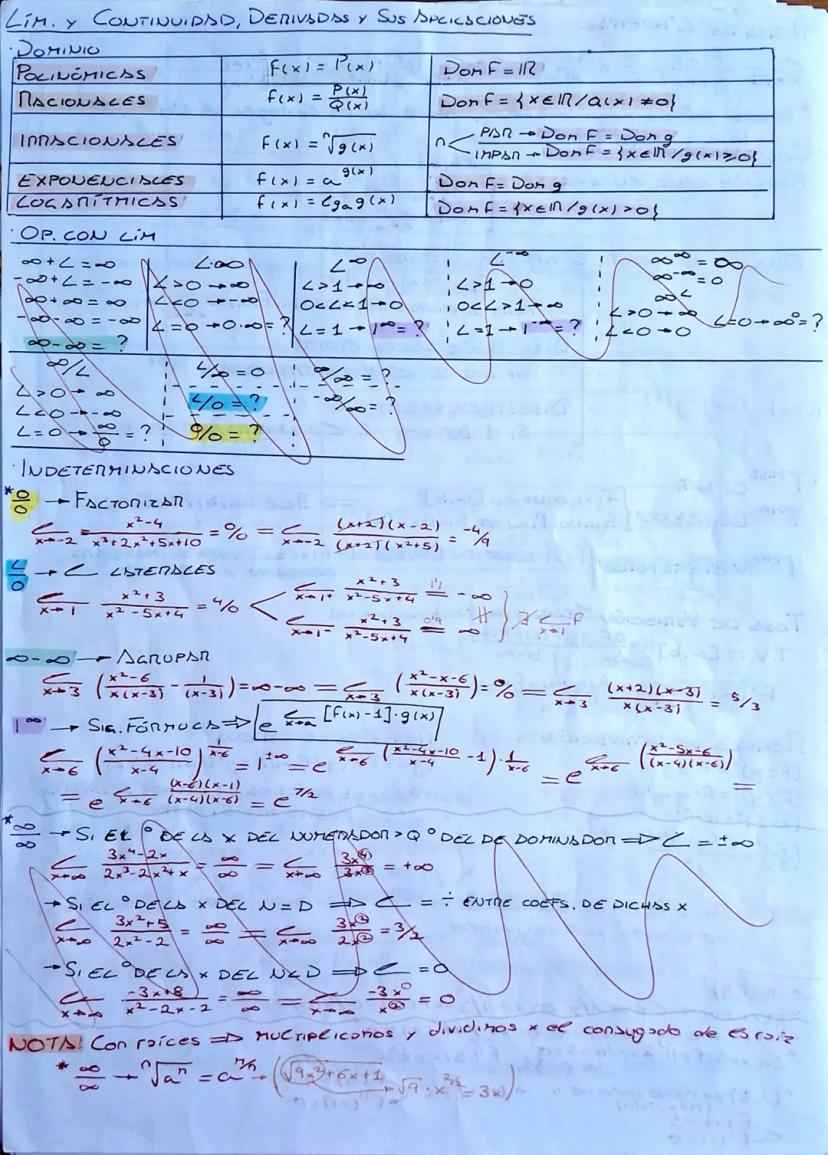 LÍM. Y CONTINUIDAD, DERIVADAS Y SUS APLICACIONES
· DOMINIO
POLINÓMICAS f(x) = P(x) Dom f = ℝ
RACIONALES f(x) = P(x)/Q(x) Dom f = {x∈ℝ/Q(x) ≠ 0}
IRRACIONALES f(x) = ⁿ√g(x) n < PAR → Dom f = Dom g
IMPAR → Dom f = {x∈ℝ/g(x) ≥ 0}
EXPONENCIALES f(x) = a^g(x) Dom f = Dom g
LOGARÍTMICAS f(x) = lg_a g(x) Dom f = {x∈ℝ/g(x) > 0}
· OP. CON LÍM
∞+L = ∞ L·∞ L^∞ L^-∞ ∞^∞ = ∞
-∞+L = -∞ L>0 → ∞ L>1 → ∞ L>1 → 0 ∞^-∞ = 0
∞+∞ = ∞ L<0 → -∞ 0<L<1 → 0 0<L>1 → ∞ ∞^L
-∞-∞ = -∞ L=0 → 0·∞ = ? L=1 → 1^∞ = ? L=1 → 1^-∞ = ? L>0 → ∞ L=0 → ∞^0 = ?
∞-∞ = ? L<0 → 0
∞/L L/∞ = 0 ∞/∞ = ?
L>0 → ∞ L/0 = ? -∞/∞ = ?
L<0 → -∞ 0/0 = ?
L=0 → ∞/0 = ?
· INDETERMINACIONES
* 0/0 → FACTORIZAR
L x→-2 (x²-4)/(x³+2x²+5x+10) = 0/0 = L x→-2 ((x+2)(x-2))/((x+2)(x²+5)) = -4/9
L/0 → L LATERALES
L x→1 (x²+3)/(x²-5x+4) = 4/0 < L x→1⁺ (x²+3)/(x²-5x+4) =(1'1) -∞
L x→1⁻ (x²+3)/(x²-5x+4) =(0'9) ∞ } ∄ L x→1 f
∞-∞ → AGRUPAR
L x→3 ((x²-6)/(x(x-3)) - 1/(x-3)) = ∞-∞ = L x→3 ((x²-x-6)/(x(x-3))) = 0/0 = L x→3 ((x+2)(x-3))/(x(x-3)) = 5/3
1^∞ → SIG. FÓRMULA ⇒ e^(L x→a [f(x)-1]·g(x))
L x→6 ((x²-4x-10)/(x-4))^(1/(x-6)) = 1^±∞ = e^(L x→6 ((x²-4x-10)/(x-4) - 1)·1/(x-6)) = e^(L x→6 ((x²-5x-6)/((x-4)(x-6)))) =
= e^(L x→6 ((x-6)(x-1))/((x-4)(x-6))) = e^(7/2)
* ∞/∞ → SI EL ° DE LA X DEL NUMERADOR > Q ° DEL DE DOMINADOR ⇒ L = ±∞
L x→∞ (3x⁴-2x)/(2x³-2x²+x) = ∞/∞ = L x→∞ 3x⁴/3x³ = +∞
→ SI EL ° DE LA X DEL N=D ⇒ L = ÷ ENTRE COEFS. DE DICHAS X
L x→∞ (3x²+5)/(2x²-2) = ∞/∞ = L x→∞ 3x²/2x² = 3/2
→ SI EL ° DE LA X DEL N<D ⇒ L = 0
L x→∞ (-3x+8)/(x²-2x-2) = ∞/∞ = L x→∞ -3x/x² = 0
NOTA: Con raíces ⇒ multiplicamos y dividimos x el conjugado de es raíz
* ∞/∞ → ⁿ√aⁿ = a^(n/n) → (√9x²+6x+1 → √9 · x^(2/2) = 3x)